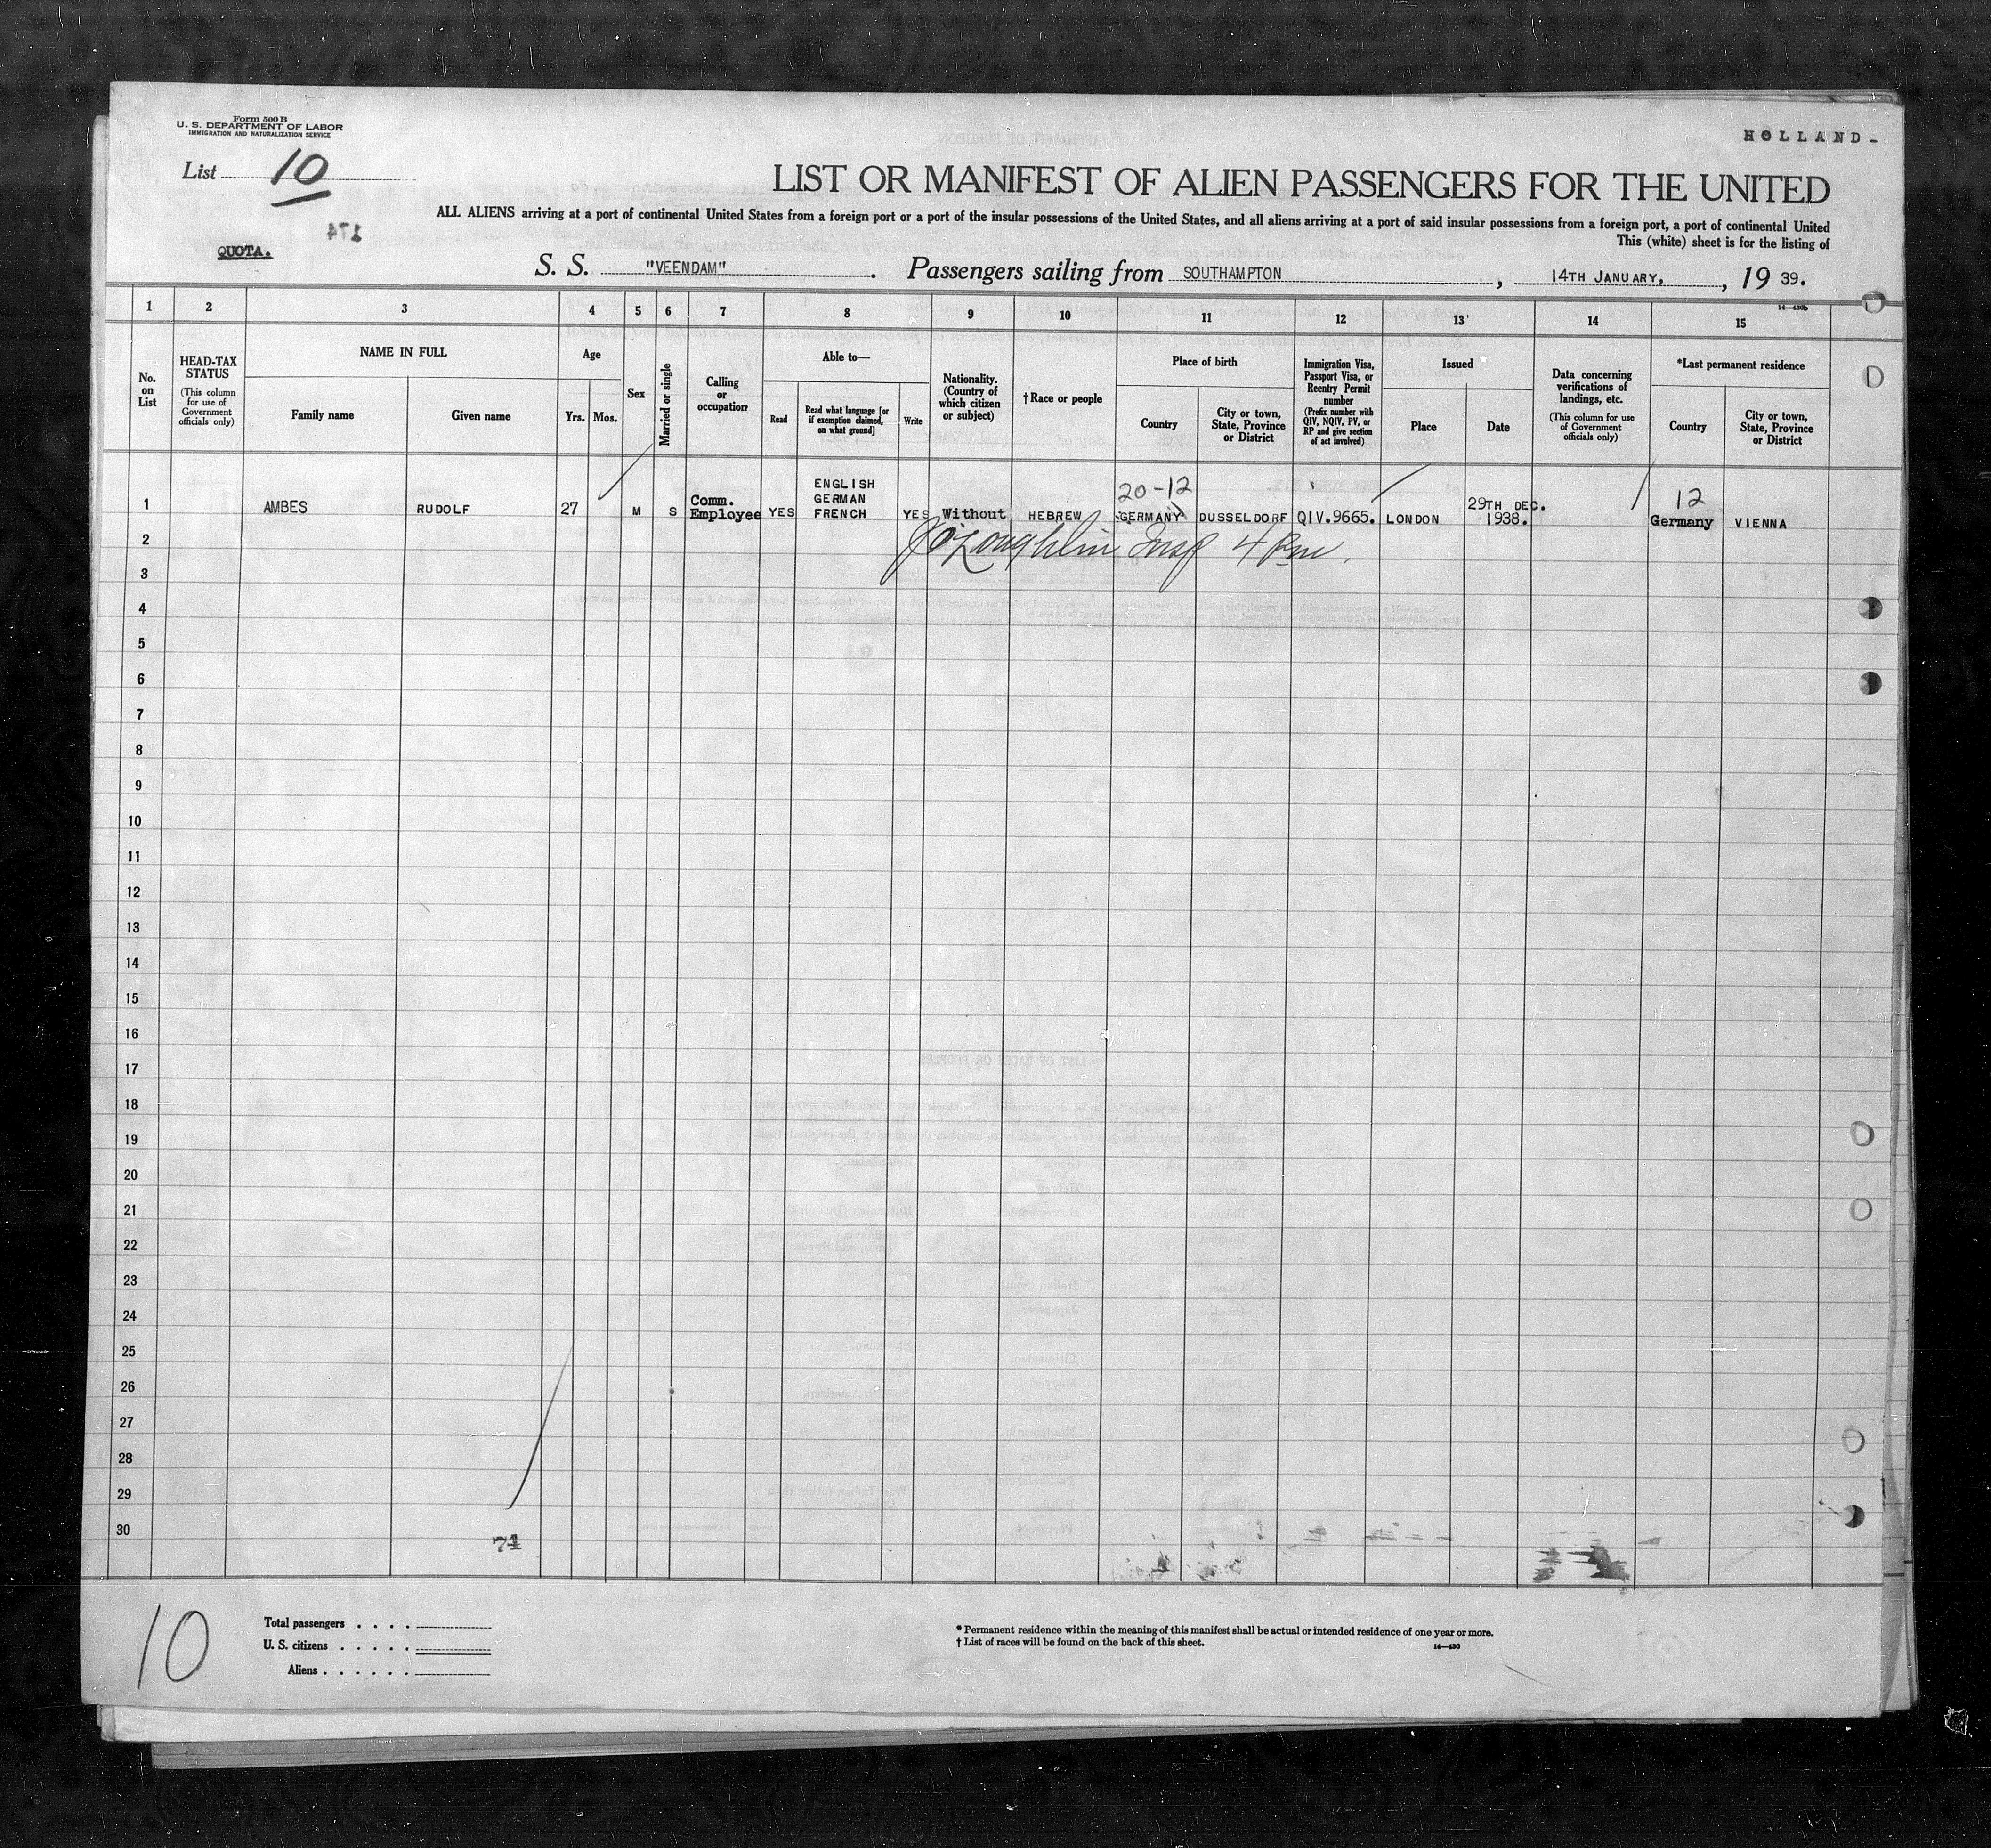 Form 500 B
U. S. DEPARTMENT OF LABOR
IMMIGRATION AND NATURALIZATION SERVICE
HOLLAND-
List 10
LIST OR MANIFEST OF ALIEN PASSENGERS FOR THE UNITED
ALL ALIENS arriving at a port of continental United States from a foreign port or a port of the insular possessions of the United States, and all aliens arriving at a port of said insular possessions from a foreign port, a port of continental United
This (white) sheet is for the listing of
174
QUOTA.
S. S. "VEENDAM". Passengers sailing from SOUTHAMPTON, 14TH JANUARY, 19 39.
14—430b
1 2 3 4 5 6 7 8 9 10 11 12 13 14 15
No. on List
HEAD-TAX STATUS
(This column for use of Government officials only)
NAME IN FULL
Family name
Given name
Age
Yrs. Mos.
Sex
Married or single
Calling or occupation
Able to—
Read
Read what language [or if exemption claimed, on what ground]
Write
Nationality. (Country of which citizen or subject)
†Race or people
Place of birth
Country
City or town, State, Province or District
Immigration Visa, Passport Visa, or Reentry Permit number
(Prefix number with QIV, NQIV, PV, or RP and give section of act involved)
Issued
Place
Date
Data concerning verifications of landings, etc.
(This column for use of Government officials only)
*Last permanent residence
Country
City or town, State, Province or District
1 AMBES RUDOLF 27 M S Comm. Employee YES ENGLISH GERMAN FRENCH YES Without HEBREW 20-12 GERMANY DUSSELDORF QIV.9665. LONDON 29TH DEC. 1938. 12 Germany VIENNA
2 J O'Loughlin Insp 4 Pm.
3
4
5
6
7
8
9
10
11
12
13
14
15
16
17
18
19
20
21
22
23
24
25
26
27
28
29
30
74
10
Total passengers . . . .
U. S. citizens . . . . .
Aliens . . . . . .
* Permanent residence within the meaning of this manifest shall be actual or intended residence of one year or more.
† List of races will be found on the back of this sheet.
14—430